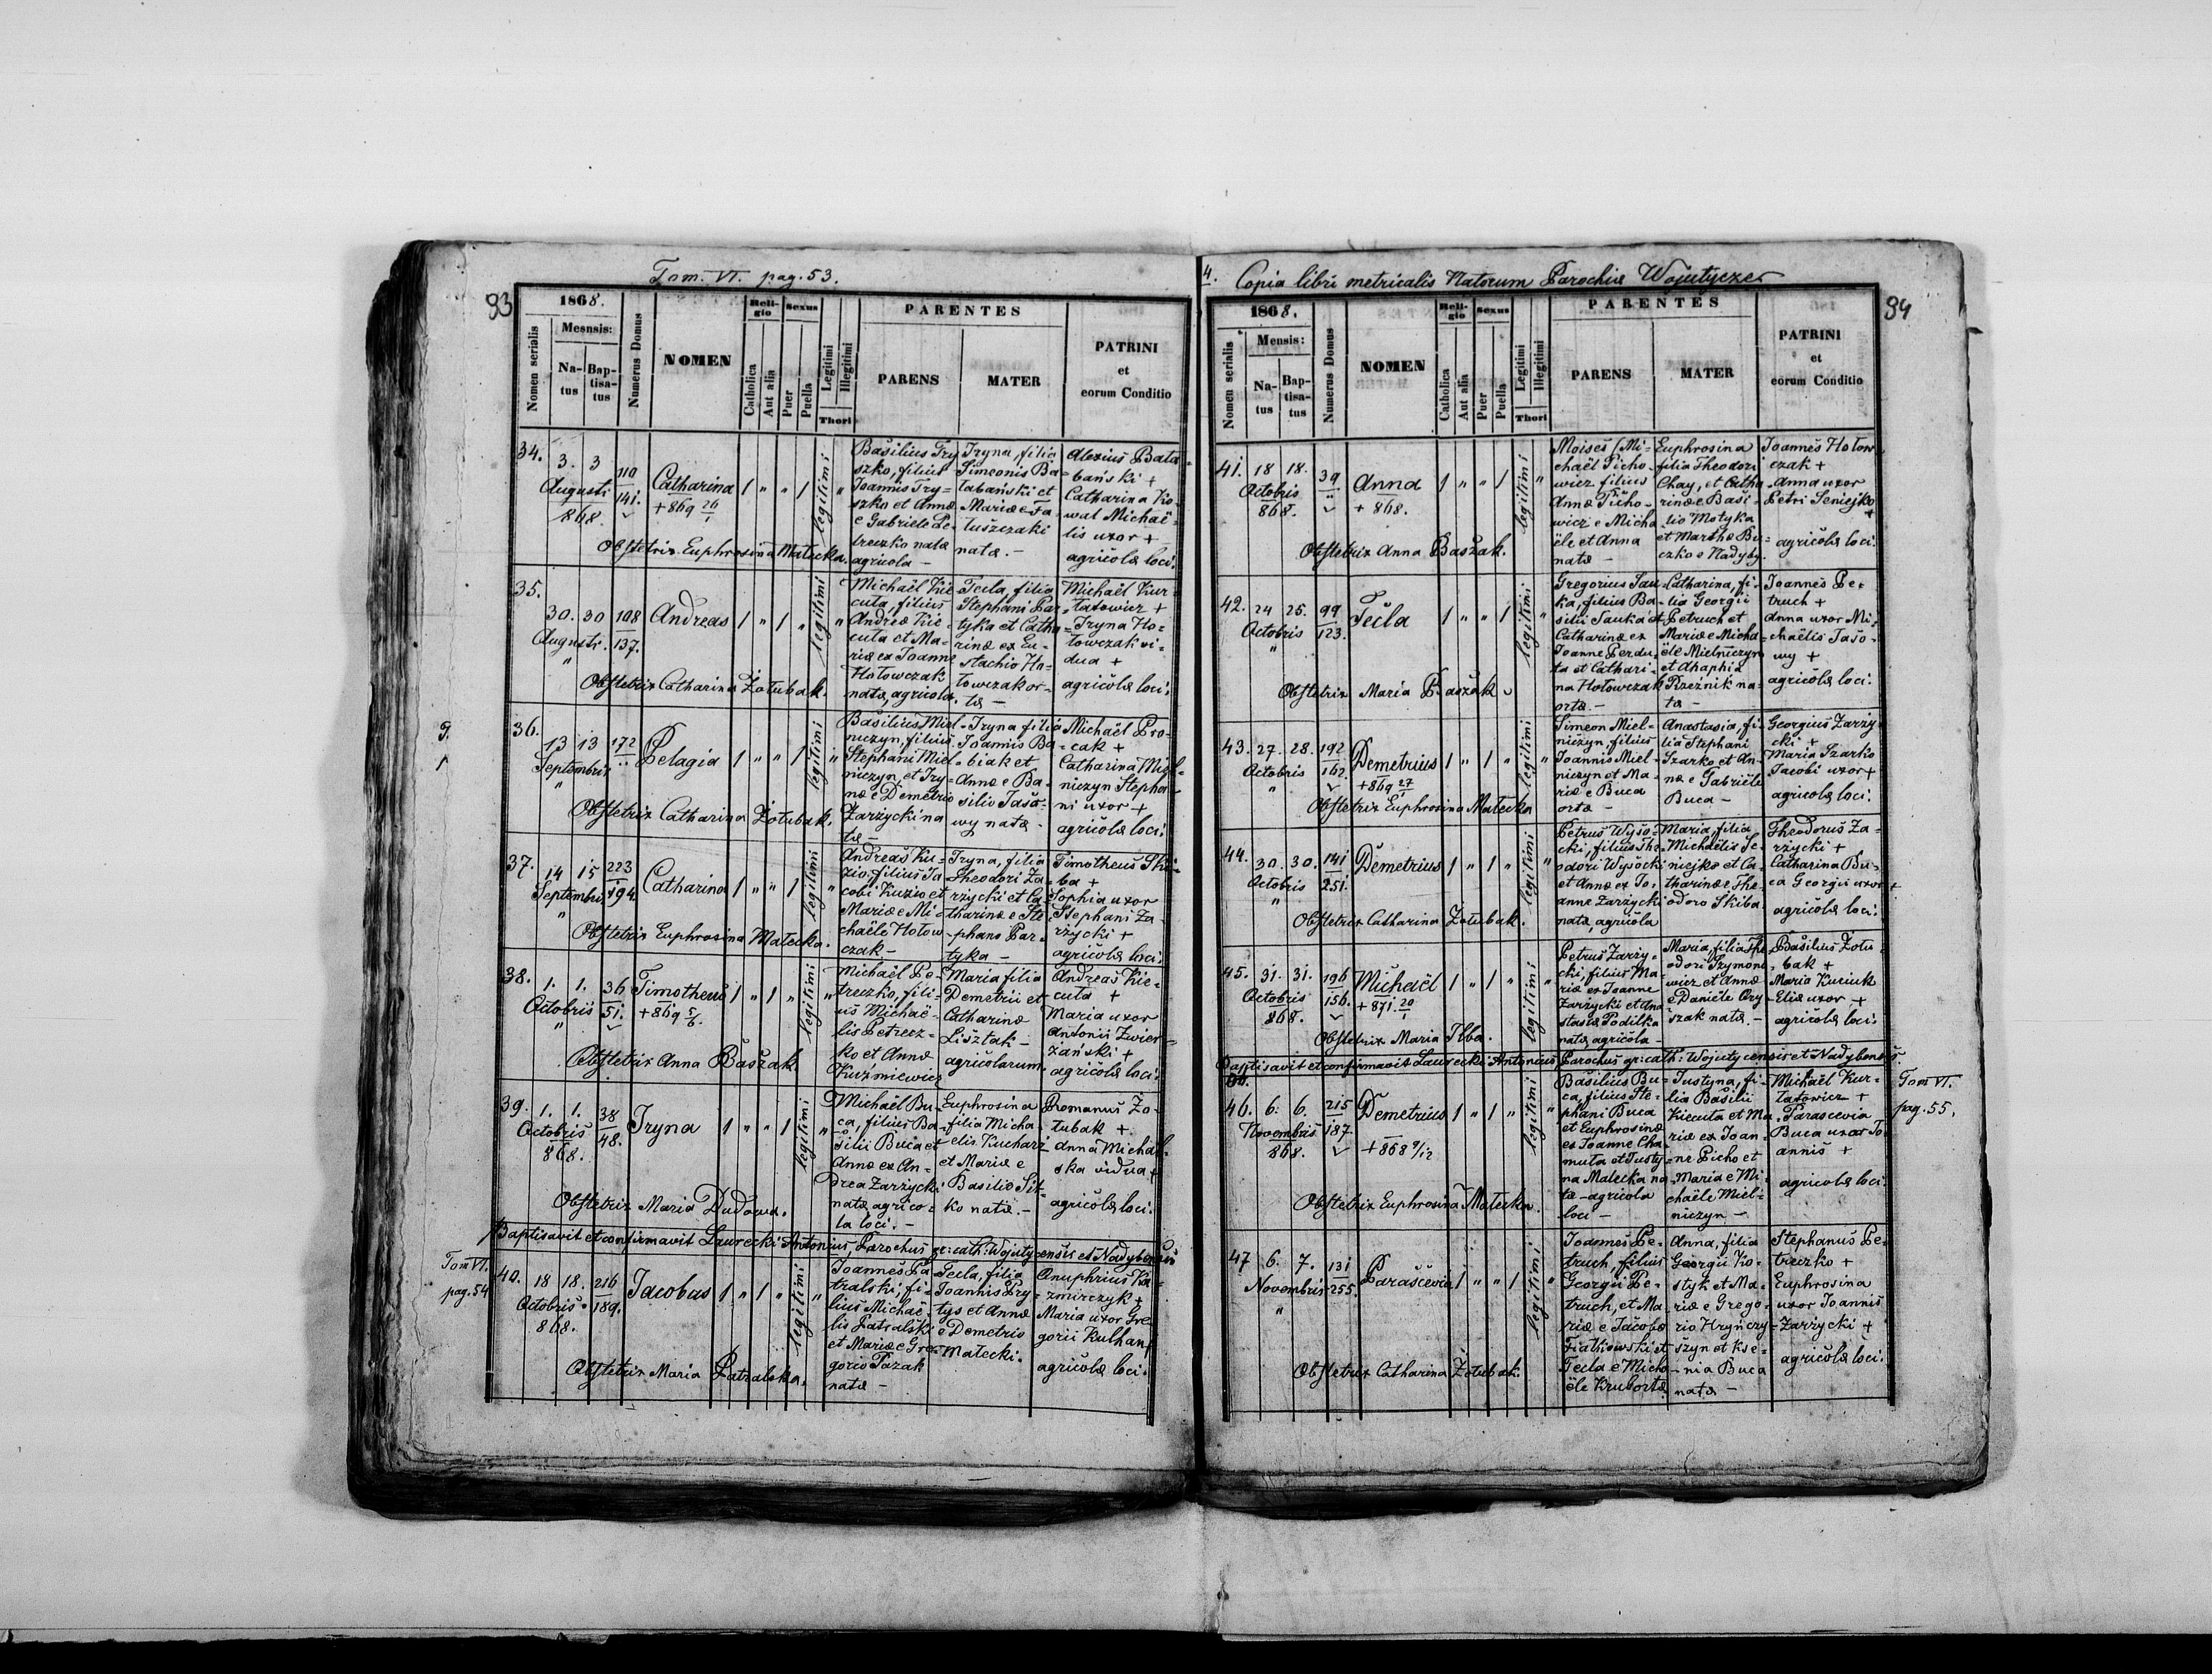 Tom. VI. pag. 53.
93
1868.
Mesnsis:
Nomen serialis
Na-
tus
Bap-
tisa-
tus
Numerus Domus
NOMEN
Reli-
gio
Catholica
Aut alia
Sexus
Puer
Puella
Legitimi
Illegitimi
Thori
PARENTES
PARENS
MATER
PATRINI
et
eorum Conditio
34.
3. 3
Augusti
868.
110
141.
Catharina
+ 869 26/1
1 " " 1
legitimi
"
Basilius Try
szko, filius
Joannis Try-
szko et Annæ
e Gabriele Pe-
treczko natæ
agricola -
Iryna, filia
Simeonis Ba-
tabański et
Mariæ e Ja-
tuszczaki
nata. -
Alexius Bata-
bański +
Catharina Ko-
wal Michaë-
lis uxor +
agricolæ loci.
Obstetrix Euphrosina Matecka.
35.
30. 30
Augusti.
"
108
137.
Andreas
1 " 1 "
legitimi
"
Michaël Kie-
cuta, filius
Andreæ Kie-
cuta et Ma-
riæ ex Joanne
Hołowczak
natæ, agricola.
Tecla, filia
Stephani Par-
tyka et Catha-
rinæ ex Eu-
stachio Ho-
łowczak or-
tæ -
Michaël Kur-
tatowicz +
Iryna Ho-
łowczak vi-
dua +
agricolæ loci.
Obstetrix Catharina Żołubak.
9.
1
36.
13 13
Septembris
"
172
Pelagia
1 " " 1
legitimi
"
Basilius Miel-
niczyn, filius
Stephani Miel-
niczyn et Iry-
næ e Demetrio
Zarzycki na
tæ -
Iryna filia
Joannis Ba-
biak et
Annæ e Ba-
silio Jaso-
wy natæ -
Michaël Pro-
cak +
Catharina Miel-
niczyn Stepha-
ni uxor +
agricolæ loci.
Obstetrix Catharina Żołubak.
37.
14 15
Septembris
"
223
194.
Catharina
1 " " 1
legitimi
"
Andreas Ku-
zio, filius Ja-
cobi Kuzio et
Mariæ e Mi-
chaële Hołow-
czak -
Iryna, filia
Theodori Za-
rzycki et Ca-
tharinæ e Ste-
phano Par-
tyka -
Timotheus Ski-
ba +
Sophia uxor
Stephani Za-
rzycki +
agricolæ loci.
Obstetrix Euphrosina Matecka.
38.
1. 1.
Octobris
"
36
51.
Timotheus
+ 869 5/6.
1 " 1 "
legitimi
"
Michaël Pe-
treczko, fili-
us Michaë-
lis Petrecz-
ko et Annæ
Kuźmiewicz
Maria filia
Demetrii et
Catharinæ
Lisztak -
agricolarum.
Andreas Kie-
cuta +
Maria uxor
Antonii Zwier-
żański +
agricolæ loci.
Obstetrix Anna Baszak.
39.
1. 1.
Octobris
868.
38
48.
Iryna
1 " " 1
legitimi
"
Michaël Bu-
ca, filius Ba-
silii Buca et
Annæ ex An-
drea Zarzycki
natæ agrico-
la loci. -
Euphrosina
filia Micha-
elis Kucharz
et Mariæ e
Basilio Sit-
ko natæ. -
Romanus Żo-
łubak +
Anna Michal-
ska vidua +
agricolæ loci.
Obstetrix Maria Dudowa.
Baptisavit et confirmavit Laurecki Antonius, Parochus gr: cath: Wojutycensis et Nadybensis
Tom VI.
pag. 54
40.
18 18.
Octobris
868.
216
189.
Jacobus
1 " 1 "
legitimi
"
Joannes Pa-
tralski, fi-
lius Michaë-
lis Patralski
et Mariæ e Gre-
gorio Pazak
natæ -
Tecla, filia
Joannis Pry-
tys et Annæ
e Demetrio
Matecki.
Onuphrius Ka-
zmirczyk +
Maria uxor Gre-
gorii Kulhan +
agricolæ loci.
Obstetrix Maria Patralska.
4. Copia libri metricalis Natorum Parochiæ Wojutycze
94
1868.
Mensis:
Nomen serialis
Na-
tus
Bap-
tisa-
tus
Numerus Domus
NOMEN
Reli-
gio
Catholica
Aut alia
Sexus
Puer
Puella
Legitimi
Illegitimi
Thori
PARENTES
PARENS
MATER
PATRINI
et
eorum Conditio
41.
18 18.
Octobris
868.
39
Anna
+ 868.
1 " " 1
legitimi
"
Moises (Mi-
chaël Picho-
wicz filius
Annæ Picho-
wicz e Micha
ële et Anna
natæ -
Euphrosina
filia Theodori
Chay, et Catha-
rinæ e Basi-
lio Motyka
et Martha Bu-
czko e Nadyby.
Joannes Hołow-
czak +
Anna uxor
Petri Seniejko
+
agricolæ loci.
Obstetrix Anna Baszak.
42.
24 25.
Octobris
"
99
123.
Tecla
1 " " 1
legitimi
"
Gregorius Sau-
ka, filius Ba-
silii Sauka et
Catharinæ ex
Joanne Perdu-
ta et Cathari-
na Hołowczak
ortæ. -
Catharina, fi-
lia Georgii
Petruch et
Mariæ e Micha-
ële Mielniczyn
et Ahaphia
Rzeźnik na-
tæ -
Joannes Pe-
truch +
Anna uxor Mi-
chaëlis Jaso-
wy +
agricolæ loci.
Obstetrix Maria Baszak.
43.
27. 28.
Octobris
"
192
162.
Demetrius
+ 869 27/1
1 " 1 "
legitimi
"
Simeon Miel-
niczyn, filius
Joannis Miel-
niczyn et Ma-
riæ e Buca
ortæ -
Anastasia, fi-
lia Stephani
Szarko et An-
næ e Gabriële
Buca -
Georgius Zarzy-
cki +
Maria Szarko
Jacobi uxor +
agricolæ loci.
Obstetrix Euphrosina Matecka
44.
30. 30.
Octobris
"
141
251.
Demetrius
1 " 1 "
legitimi
"
Petrus Wyso-
cki, filius The-
odori Wysocki
et Annæ ex Jo-
anne Zarzycki
natæ, agricola
Maria, filia
Michaëlis Se-
niejko et Ca-
tharinæ The-
odoro Skiba.
Theodorus Za-
rzycki +
Catharina Bu-
ca Georgii uxor +
agricolæ loci.
Obstetrix Catharina Żołubak.
45.
31. 31.
Octobris
868.
196
156.
Michaël
+ 871. 20/1
1 " 1 "
legitimi
"
Petrus Zarzy-
cki, filius Ma-
riæ ex Joanne
Zarzycki et Ana
stasia Podilka
natæ, agricola -
Maria, filia The-
odori Szymono-
wicz et Annæ
e Daniële Ory-
szak natæ. -
Basilius Żołu-
bak +
Maria Kuciuk
Eliæ uxor +
agricolæ loci.
Obstetrix Maria Ilba.
Baptisavit et confirmavit Laurecki Antonius, Parochus gr: cath: Wojutycensis et Nadybensis.
Tom VI.
pag. 55.
46.
6. 6.
Novembris
868.
215
187.
Demetrius
+ 868 9/12
1 " 1 "
legitimi
"
Basilius Bu-
ca, filius Ste-
phani Buca
et Euphrosinæ
ex Joanne Cha-
muta et Justy-
na Matecka na-
tæ - agricola
loci -
Justyna, fi-
lia Basilii
Kiecuta et Ma-
riæ ex Joan-
ne Picho et
Maria e Mi-
chaële Miel-
niczyn -
Michaël Kur-
tatowicz +
Parascevia
Buca uxor Jo-
annis +
agricolæ loci.
Obstetrix Euphrosina Matecka.
47
6. 7.
Novembris
"
131
255.
Parascevia
1 " " 1
legitimi
"
Joannes Pe-
truch, filius
Georgii Pe-
truch, et Ma-
riæ e Jacobo
Fiałkowski et
Tecla e Micha-
ële Krub ortæ
Anna, filia
Georgii Ko-
styk et Ma-
riæ e Grego-
rio Hryńczy-
szyn et Kse-
nia Buca
natæ -
Stephanus Pe-
treczko +
Euphrosina
uxor Joannis
Zarzycki +
agricolæ loci.
Obstetrix Catharina Żołubak.